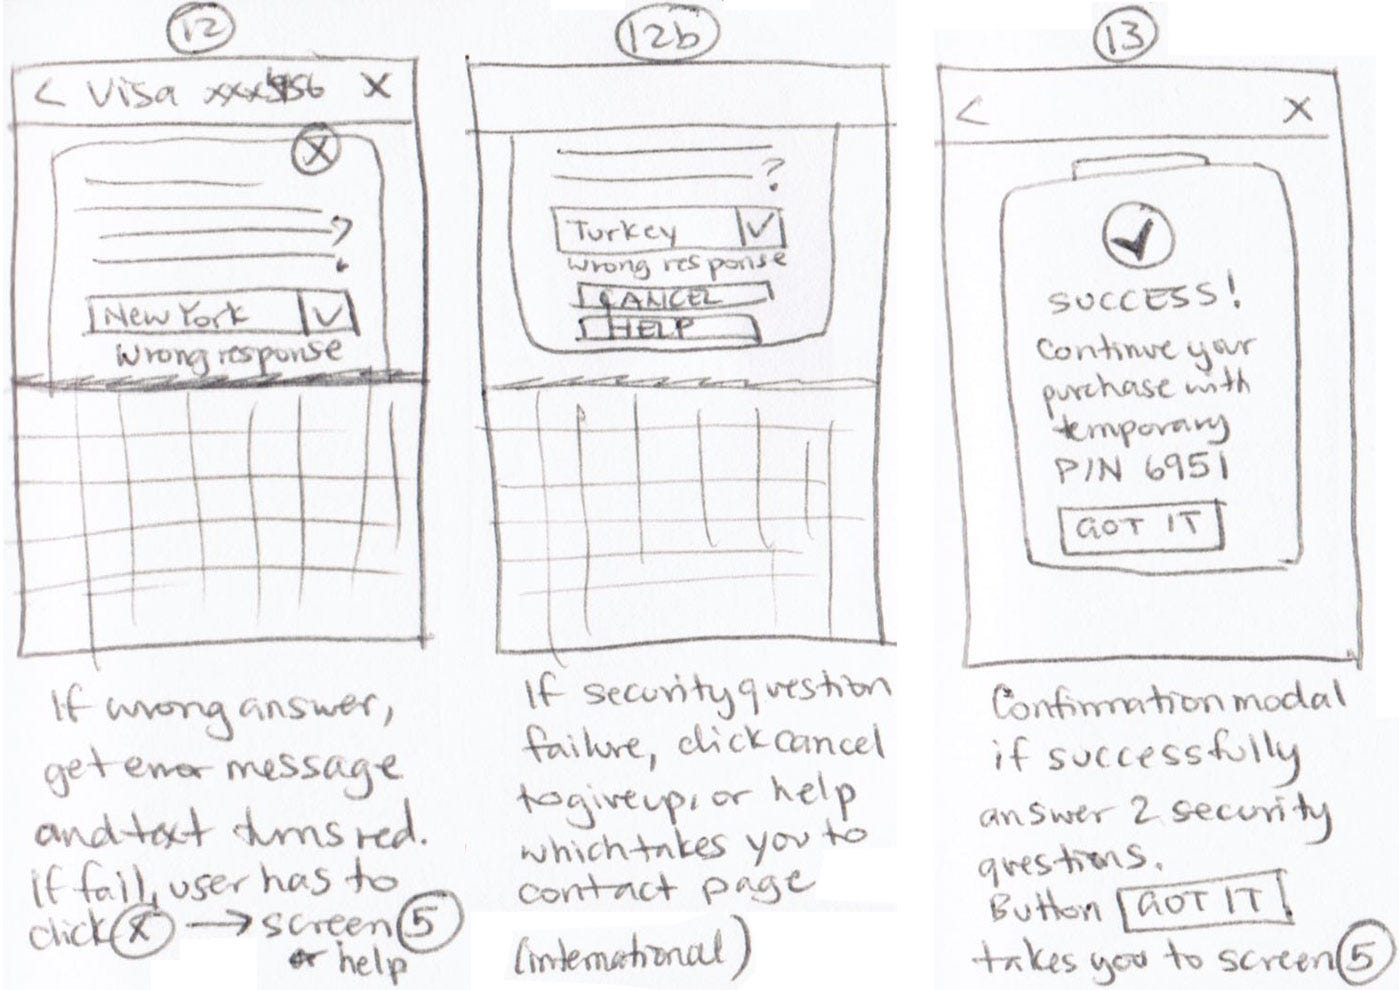 12
< Visa xxx5456 X
X
?
New York
Wrong response
If wrong answer,
get error message
and text turns red.
If fail, user has to
click X → screen 5
or help
12b
?
Turkey
wrong response
CANCEL
HELP
If security question
failure, click cancel
to give up, or help
which takes you to
contact page
(international)
13
< X
SUCCESS!
Continue your
purchase with
temporary
PIN 6951
GOT IT
Confirmation modal
if successfully
answer 2 security
questions.
Button GOT IT
takes you to screen 5